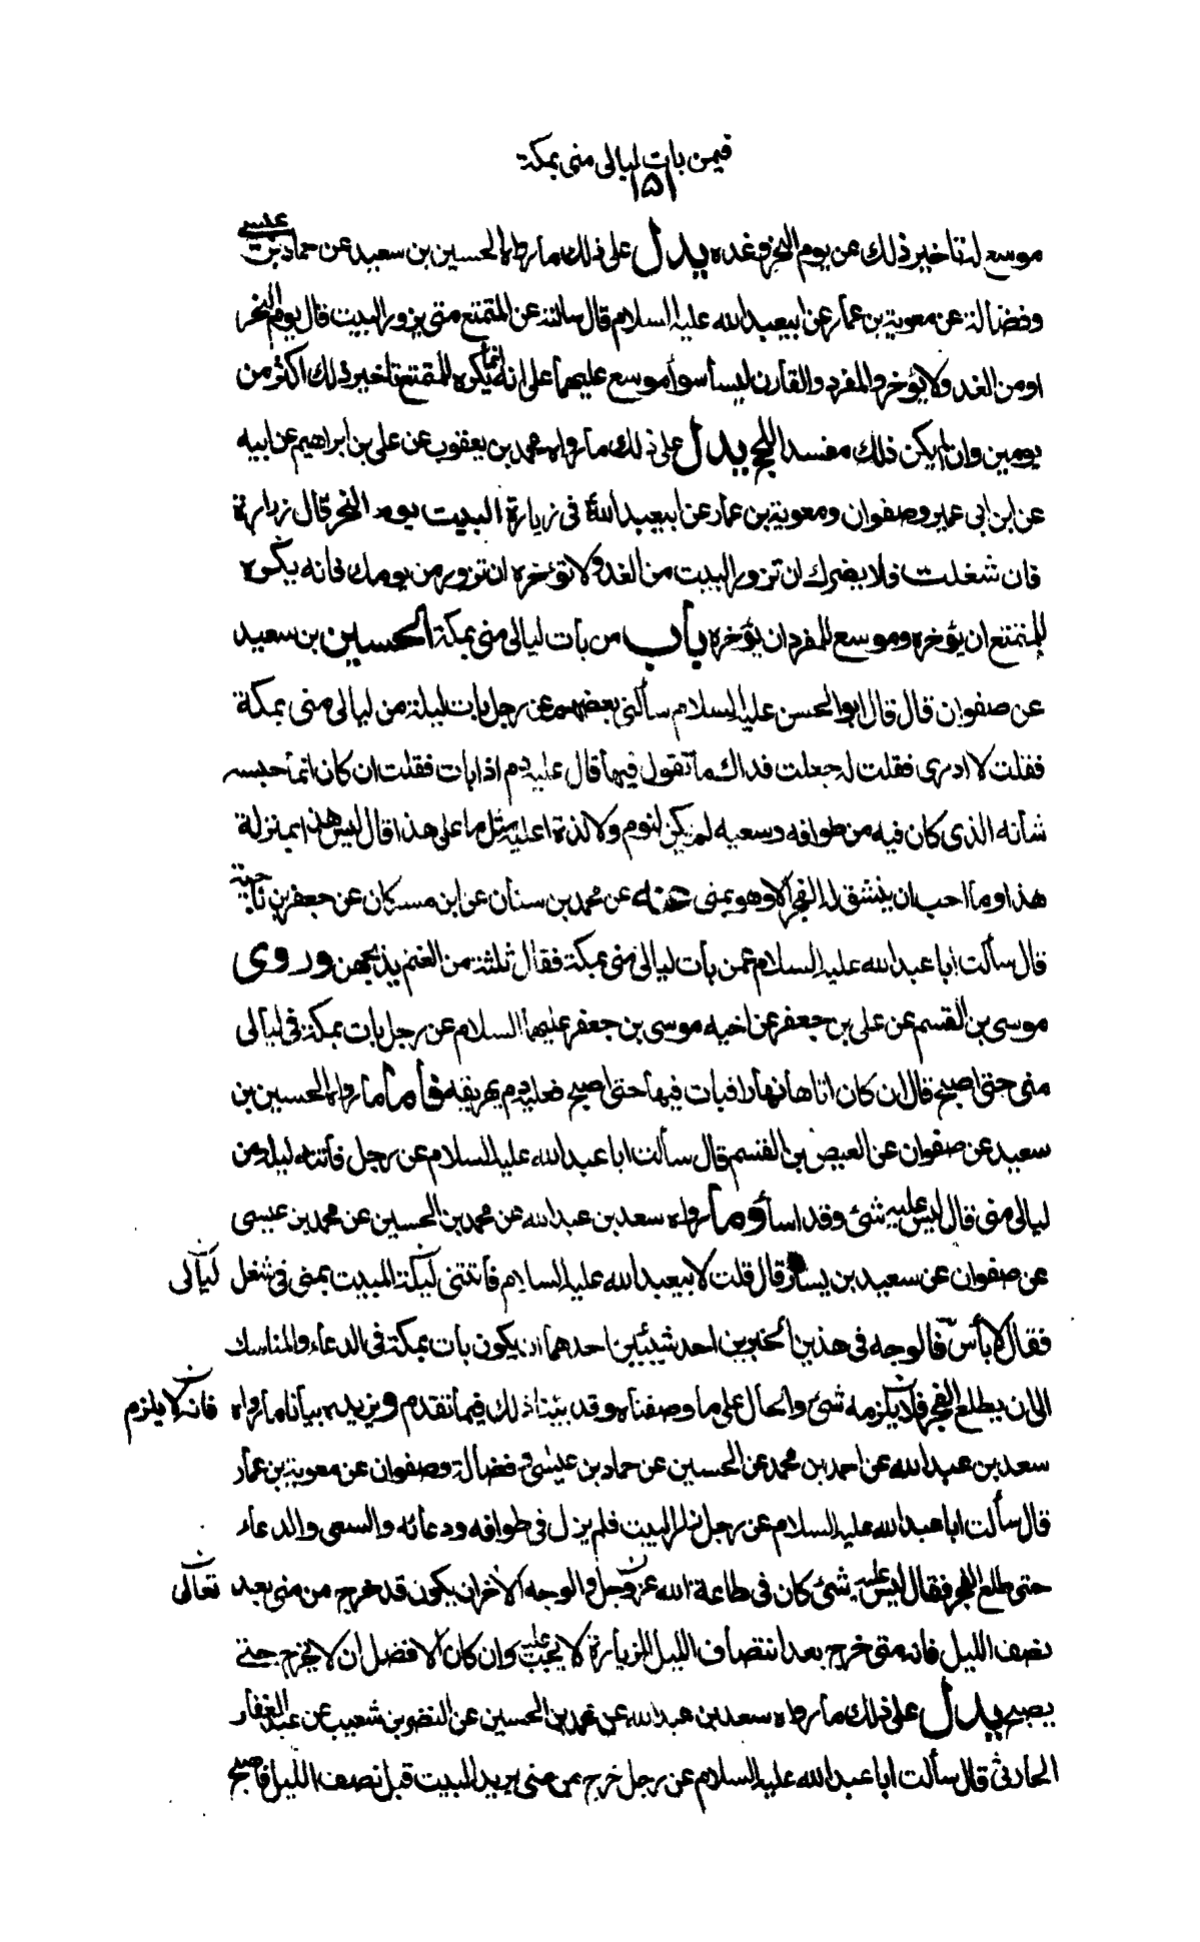 فيمن بات ليالى منى بمكة
١٥١
موسع له تاخير ذلك عن يوم النحر وغده يدل على ذلك ما رواه الحسين بن سعيد عن حماد بن عيسى
وفضالة عن معوية بن عمار عن ابيعبد الله عليه السلام قال سالته عن المتمتع متى يزور البيت قال يوم النحر
او من الغد ولا يؤخر والمفرد والقارن ليسا سوأ موسع عليهما على انه انما يكره للمتمتع تاخير ذلك اكثر من
يومين وان لم يكن ذلك مفسدا للحج يدل على ذلك ما رواه محمد بن يعقوب عن على بن ابراهيم عن ابيه
عن ابن ابى عمير وصفوان ومعوية بن عمار عن ابيعبد الله ع فى زيارة البيت يوم النحر قال زره
فان شغلت فلا يضرك ان تزور البيت من الغد ولا تؤخره ان تزور من يومك فانه يكره
للمتمتع ان يؤخره وموسع للمفرد ان يؤخره باب من بات ليالى منى بمكة الحسين بن سعيد
عن صفوان قال قال ابو الحسن عليه السلام سألنى بعضهم عن رجل بات ليلة من ليالى منى بمكة
فقلت لا ادرى فقلت له جعلت فداك ما تقول فيها قال عليه دم اذا بات فقلت ان كان انما حبسه
شأنه الذى كان فيه من طوافه وسعيه لم يكن لنوم ولا لذة اعليه مثل ما على هذا قال ليس هذا بمنزلة
هذا وما احب ان ينشق له الفجر الا وهو بمنى عنه عن محمد بن سنان عن ابن مسكان عن جعفر بن ناجية
قال سألت ابا عبد الله عليه السلام عمن بات ليالى منى بمكة فقال ثلثة من الغنم يذبحهن وروى
موسى بن القسم عن على بن جعفر عن اخيه موسى بن جعفر عليهما السلام عن رجل بات بمكة فى ليالى
منى حتى اصبح قال ان كان اتاها نهارا فبات فيها حتى اصبح فعليه دم يهريقه فأما ما رواه الحسين بن
سعيد عن صفوان عن العيص بن القسم قال سألت ابا عبد الله عليه السلام عن رجل فأتته ليلة من
ليالى منى قال ليس عليه شئ وقد اسأ وما رواه سعد بن عبد الله عن محمد بن الحسين عن محمد بن عيسى
عن صفوان عن سعيد بن يسار قال قلت لابيعبد الله عليه السلام فأتتنى ليلة المبيت بمنى فى شغل ليالى
فقال لا بأس فالوجه فى هذين الخبرين احد شيئين احدهما ان يكون بات بمكة فى الدعاء والمناسك
الى ان يطلع الفجر فلا يلزمه شئ والحال على ما وصفناه وقد بينا ذلك فيما تقدم ويزيده بيانا ما رواه فانه لا يلزم
سعد بن عبد الله عن احمد بن محمد عن الحسين عن حماد بن عيسى وفضالة وصفوان عن معوية بن عمار
قال سألت ابا عبد الله عليه السلام عن رجل زار البيت فلم يزل فى طوافه ودعائه والسعى والدعاء
حتى طلع الفجر فقال ليس عليه شئ كان فى طاعة الله عز وجل والوجه الاخر ان يكون قد خرج من منى بعد تعالى
نصف الليل فانه متى خرج بعد انتصاف الليل للزيارة لا يجب عليه وان كان الافضل ان لا يخرج حتى
يصبح يدل على ذلك ما رواه سعد بن عبد الله عن محمد بن الحسين عن النضر بن شعيب عن عبد الغفار
الحازثى قال سألت ابا عبد الله عليه السلام عن رجل خرج من منى يريد البيت قبل نصف الليل فاصبح